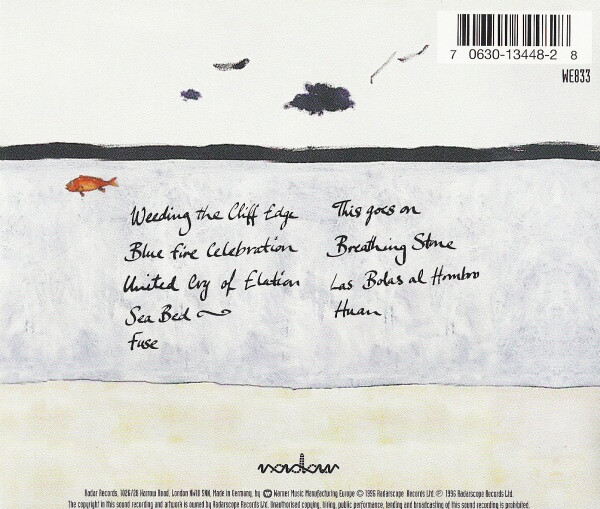 7 0630-13448-2 8
WE833
Weeding the Cliff Edge
Blue Fire Celebration
United Cry of Elation
Sea Bed
Fuse
This goes on
Breathing Stone
Las Bolas al Hombro
Huan
radar
Radar Records, 1026/28 Harrow Road, London NW10 5NN, Made in Germany, by Warner Music Manufacturing Europe © 1996 Radarscope Records Ltd. ℗ 1996 Radarscope Records Ltd.
The copyright in this sound recording and artwork is owned by Radarscope Records Ltd. Unauthorised copying, hiring, public performance, lending and broadcasting of this sound recording is prohibited.